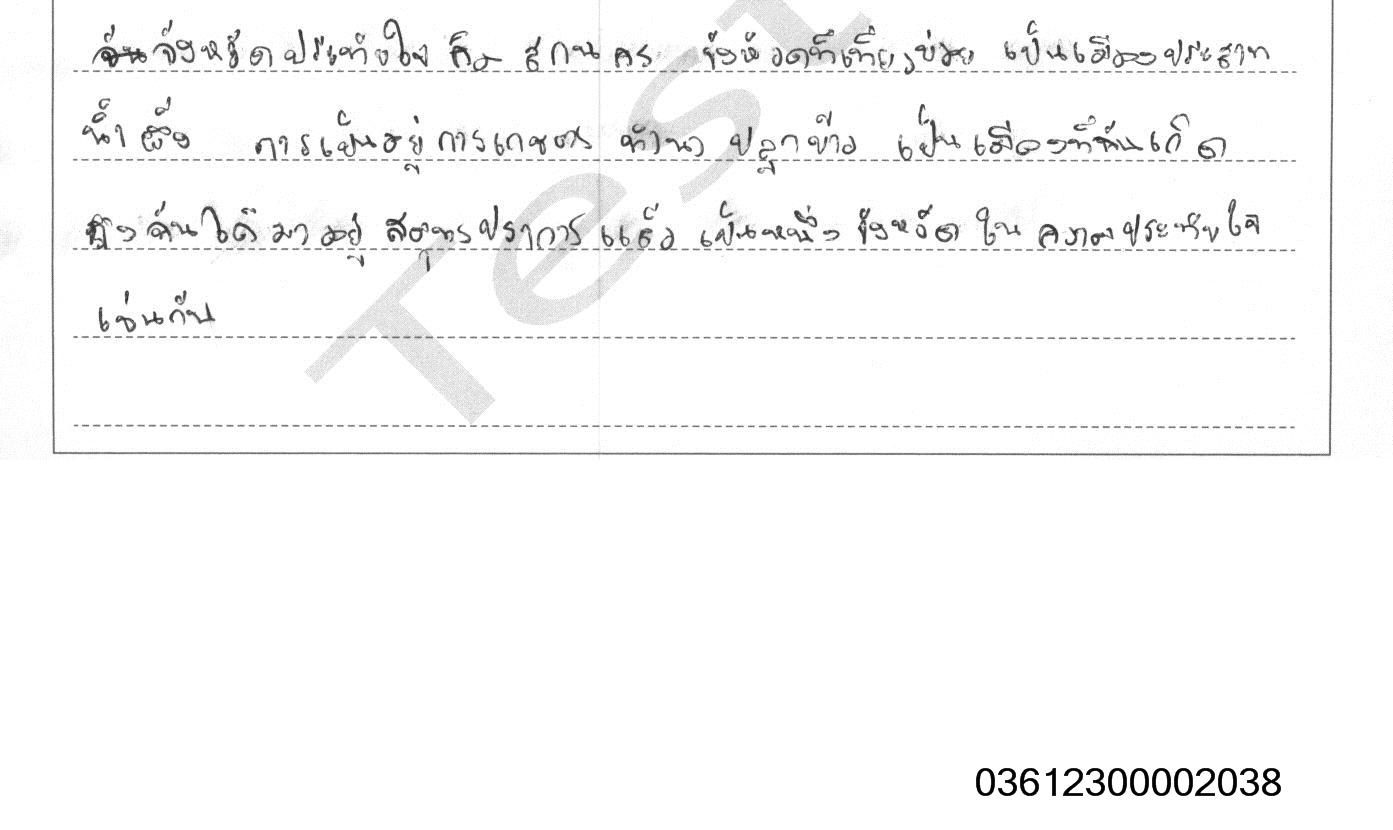 จังหวัดประทับใจ คือ สกนคร จังหวัดที่เที่ยวบ่อย เป็นเมืองประสาท
น้ำผึ้ง การเป็นอยู่การเกษตร ทำนา ปลูกข้าว เป็นเมืองที่ฉันเกิด
ฉันได้มาอยู่ สมุทรปราการ แล้ว เป็นหนึ่ง จังหวัด ใน ความประทับใจ
เช่นกัน
Test
03612300002038